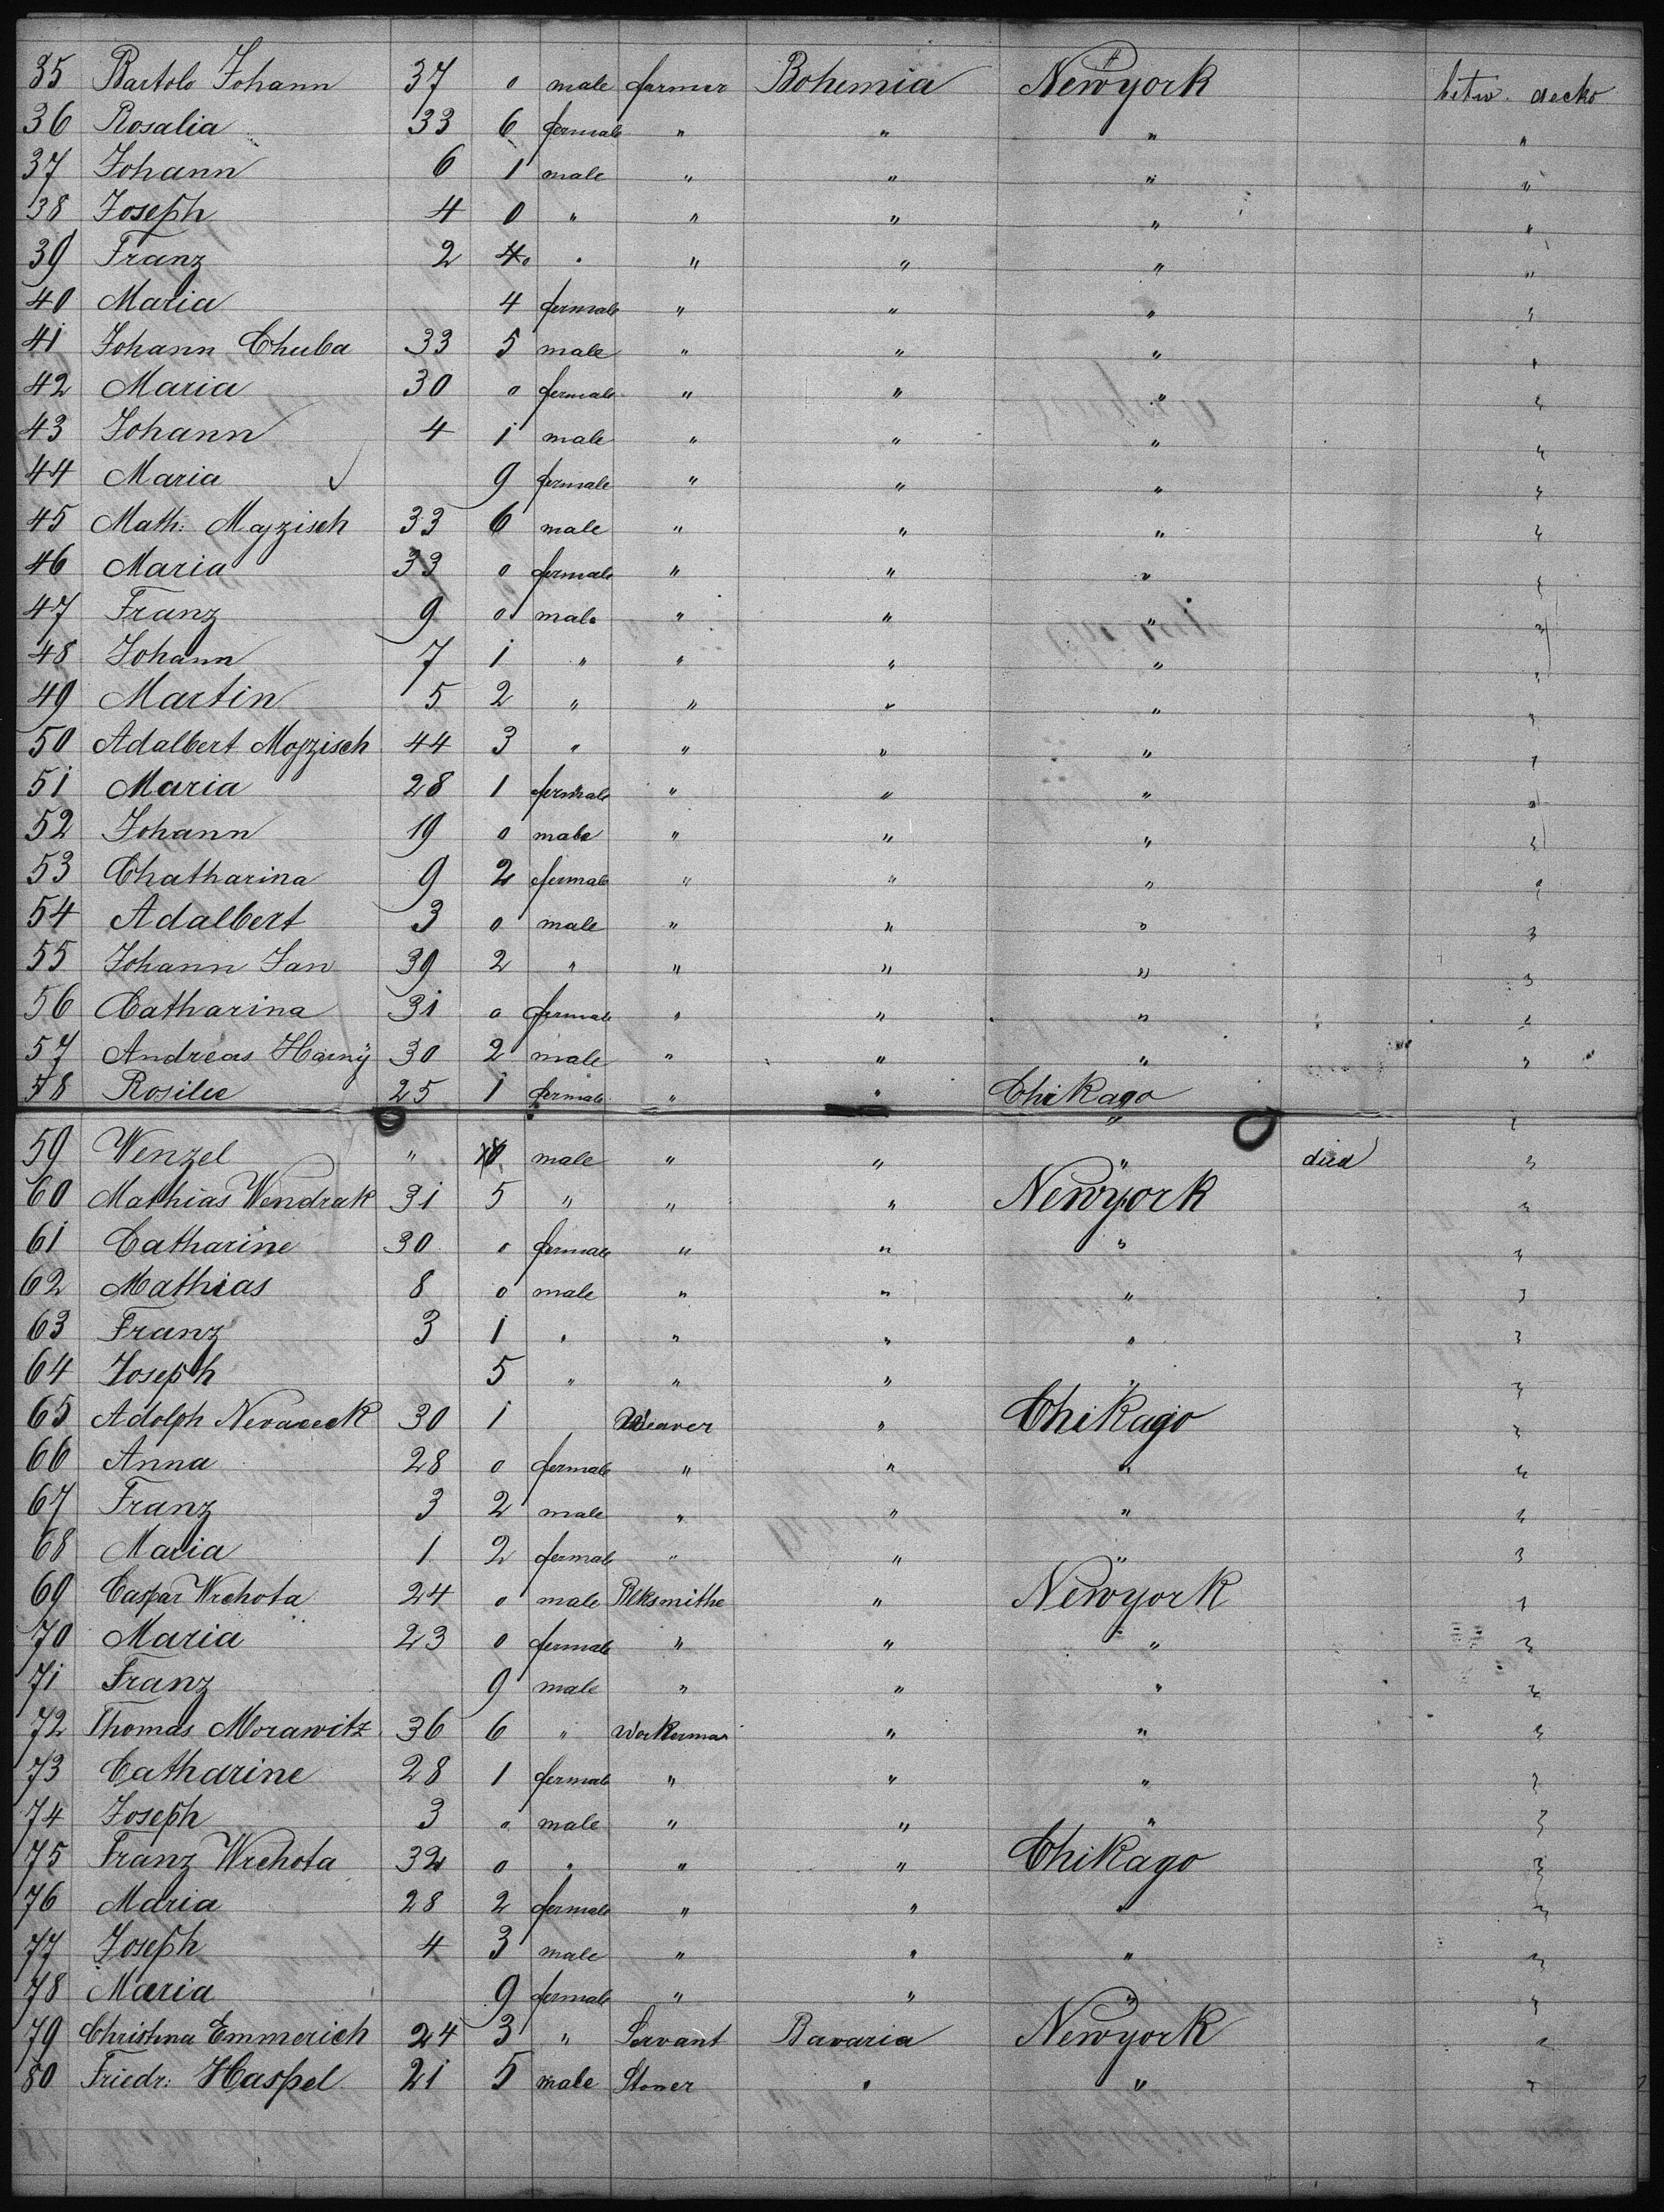 35 Bartolo Johann 37 0 male farmer Bohemia Newyork betw. decks
36 Rosalia 33 6 fermale " " " "
37 Johann 6 1 male " " " "
38 Joseph 4 0 " " " " "
39 Franz 2 4 " " " " "
40 Maria 4 fermale " " " "
41 Johann Chuba 33 5 male " " " "
42 Maria 30 0 fermale " " " "
43 Johann 4 1 male " " " "
44 Maria 9 fermale " " " "
45 Math: Mojzisch 33 6 male " " " "
46 Maria 33 0 fermale " " " "
47 Franz 9 0 male " " " "
48 Johann 7 1 " " " " "
49 Martin 5 2 " " " " "
50 Adalbert Mojzisch 44 3 " " " " "
51 Maria 28 1 fermale " " " "
52 Johann 19 0 male " " " "
53 Chatharina 9 2 fermale " " " "
54 Adalbert 3 0 male " " " "
55 Johann Jan 39 2 " " " " "
56 Catharina 31 0 fermale " " " "
57 Andreas 30 2 male " " " "
58 Rosilie 25 1 fermale " " Chikago "
59 Wenzel " male " " " died "
60 Mathias Wendrak 31 5 " " " Newyork "
61 Catharine 30 0 fermale " " " "
62 Mathias 8 0 male " " " "
63 Franz 3 1 " " " " "
64 Joseph 5 " " " " "
65 Adolph 30 1 Weaver " Chikago "
66 Anna 28 0 fermale " " " "
67 Franz 3 2 male " " " "
68 Maria 1 2 fermale " " " "
69 Caspar Wrchota 24 0 male Blksmithe " Newyork "
70 Maria 23 0 fermale " " " "
71 Franz 9 male " " " "
72 Thomas Morawitz 36 6 " Workerman " " "
73 Catharine 28 1 fermale " " " "
74 Joseph 3 0 male " " " "
75 Franz Wrchota 32 0 " " " Chikago "
76 Maria 28 2 fermale " " " "
77 Joseph 4 3 male " " " "
78 Maria 9 fermale " " " "
79 Christina Emmerich 24 3 " Servant Bavaria Newyork "
80 Friedr: Haspel 21 5 male Stoner " " "